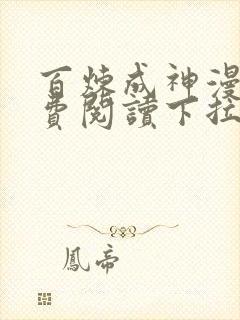 百煉成神漫
費閱讀下拉
鳳帝